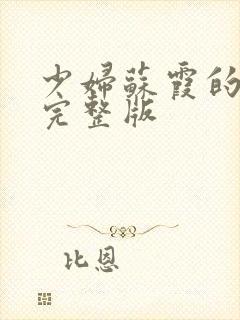 少婦蘇霞的
完整版
比恩